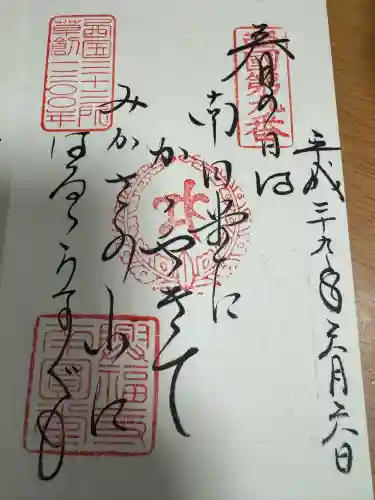 平成二十九年六月六日
西國第九番
春の日は
南円堂に
かゝやきて
みかさの山に
はるゝうすぐも
西国三十三所
草創一三〇〇年
興福寺
南圓堂